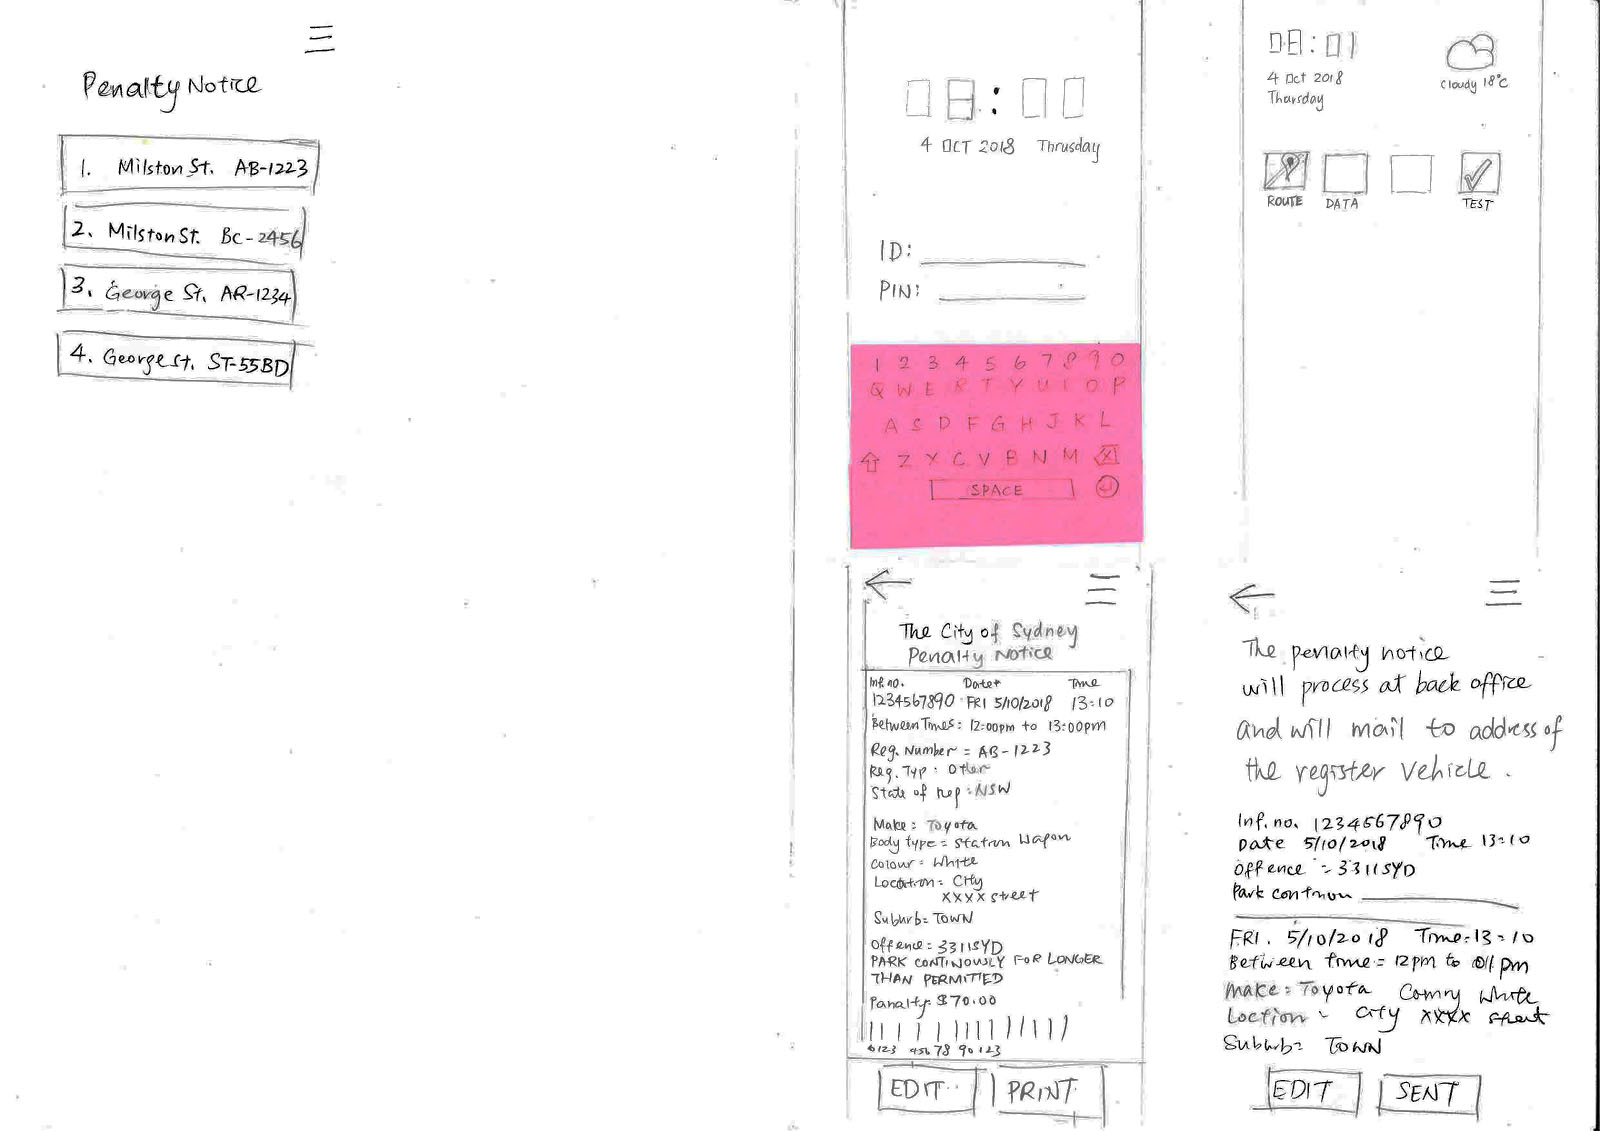 Penalty Notice
1. Milston St. AB-1223
2. Milston St. BC-2456
3. George St. AR-1234
4. George St. ST-55BD
08:00
4 OCT 2018 Thrusday
ID:
PIN:
1 2 3 4 5 6 7 8 9 0
Q W E R T Y U I O P
A S D F G H J K L
Z X C V B N M
SPACE
08:01
4 Oct 2018
Thursday
Cloudy 18°C
ROUTE DATA TEST
The City of Sydney
Penalty Notice
Inf. no. Date Time
1234567890 FRI 5/10/2018 13:10
Between Times: 12:00pm to 13:00pm
Reg. Number = AB-1223
Reg. Typ: Other
State of rep: NSW
Make: Toyota
Body type = Station Wagon
Colour = White
Location = City
XXXX street
Suburb = TOWN
Offence = 3311SYD
PARK CONTINOUSLY FOR LONGER
THAN PERMITTED
Panalty $70.00
0123 456 78 90 123
EDIT PRINT
The penalty notice
will process at back office
and will mail to address of
the register vehicle.
Inf. no. 1234567890
Date 5/10/2018 Time 13:10
Offence = 3311SYD
Park
FRI. 5/10/2018 Time: 13:10
Between time = 12pm to 01pm
Make: Toyota Comry White
Loction City XXXX
Suburb = TOWN
EDIT SENT